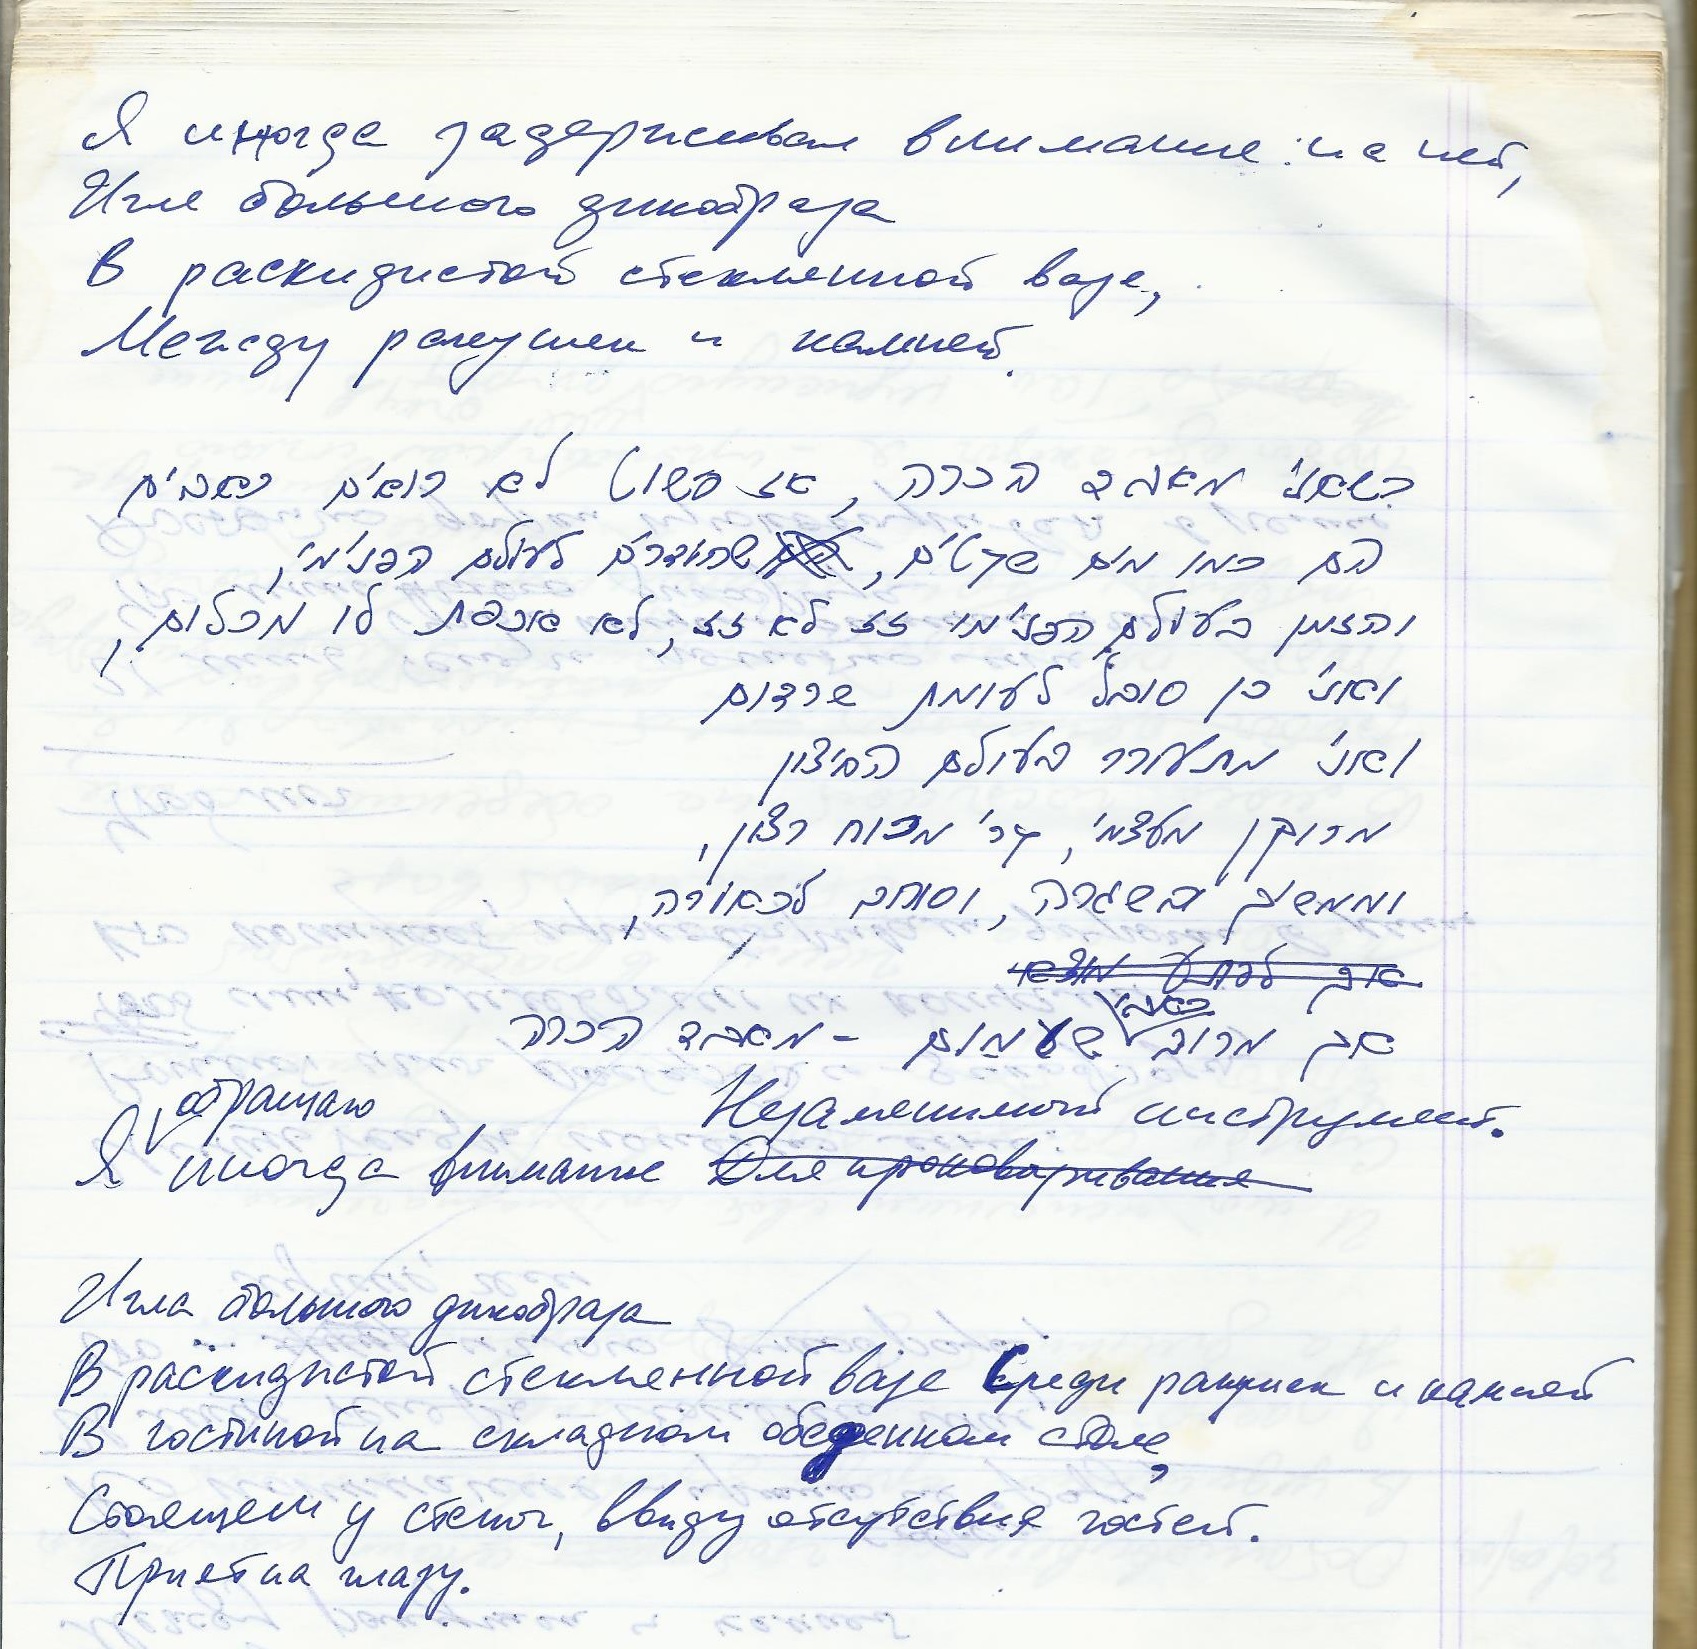 Я иногда задерживал внимание на ней,
Игле большого дикобраза
В раскидистой стеклянной вазе,
Между ракушек и камней.
כשאני מאבד הכרה, אז פשוט לא רואים כאבים
הם כמו מים שקטים, שחודרים לעולם הפנימי,
והזמן בעולם הפנימי זז לא זז, לא אכפת לו מכלום,
ואני כן סובל לעומת שרדום
ואני מתעורר בעולם החיצון
מרוקן מעצמי, קרי מכוח רצון,
וממשיך בשגרה, וסוחב לכאורה,
אך לפתע מוצא
כאבי
אך מרוב שעמום – מאבד הכרה
обращаю Незаменимый инструмент.
Я иногда внимание Для проковыривания
Игла большого дикобраза
В раскидистой стеклянной вазе Среди ракушек и камней
В гостиной на складном обеденном столе,
Стоящем у стены, ввиду отсутствия гостей.
Приятна глазу.